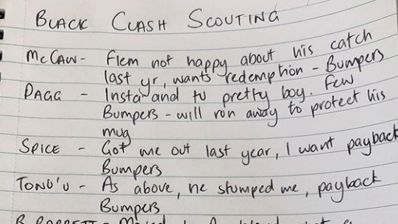 BLACK CLASH SCOUTING
McCAW - Flem not happy about his catch
last yr, wants redemption - Bumpers
DAGG - Insta and tv pretty boy. Few
Bumpers - will run away to protect his
mug
SPICE - Got me out last year, I want payback
Bumpers
TONU'U - As above, he stumped me, payback
Bumpers